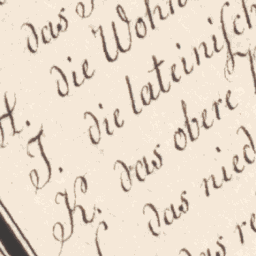 das
die Wohn
H. die lateinisch
I. das obere
K. das nied
das re